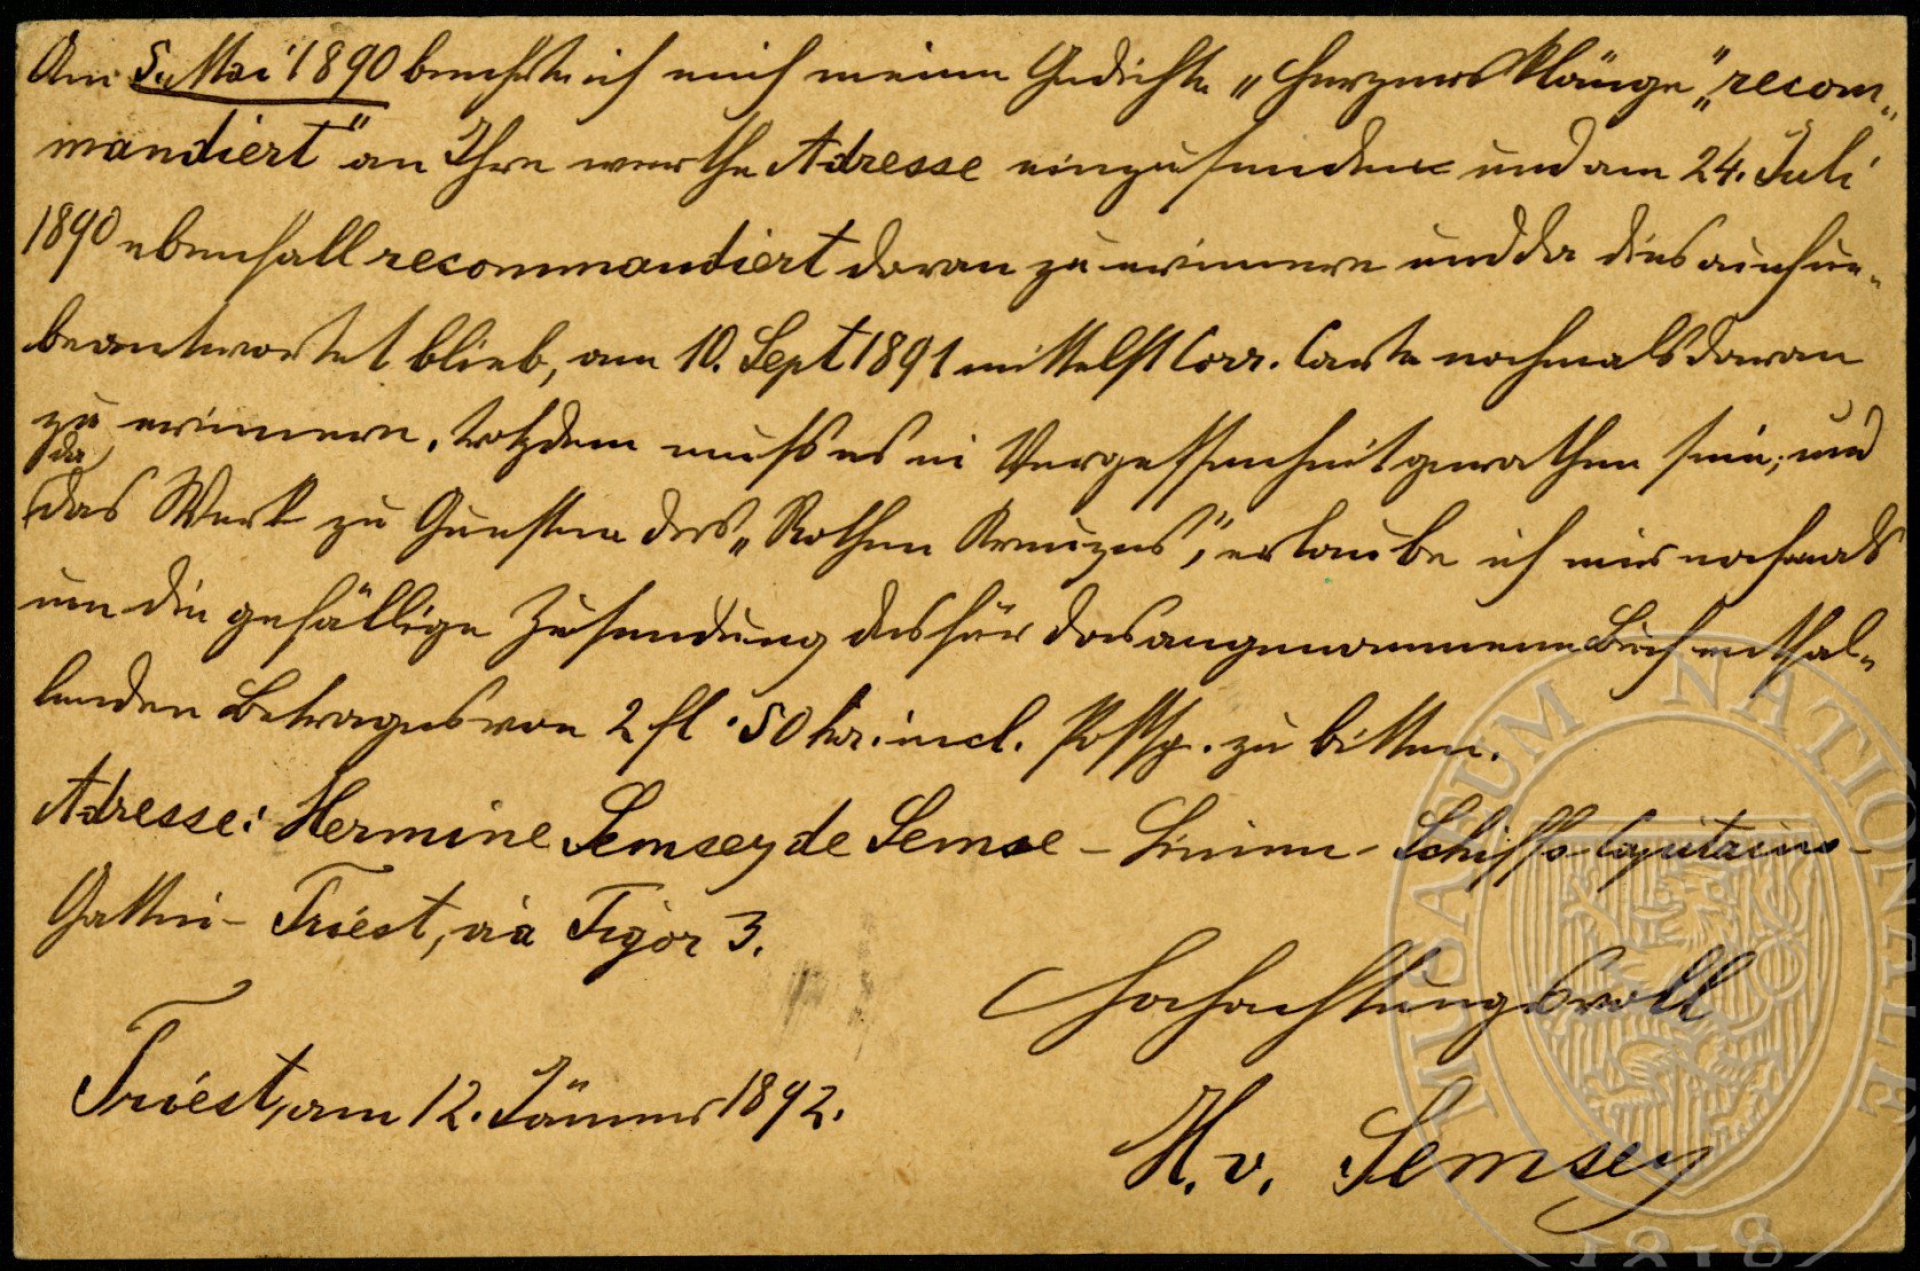 Am 5. Mai 1890 beehrte ich mich meine Gedichte „Herzensklänge" „recom„
mandiert" an Ihre werthe Adresse einzusenden und am 24. Juli
1890 ebenfall recommandiert daran zu erinnern und da dies auch un„
beantwortet blieb, am 10. Sept 1891 mittelst Corr. Carte nochmals daran
zu erinnern, trotzdem muß es in Vergessenheit gerathen sein; und
da
das Werk zu Gunsten des „Rothen Kreuzes", erlaube ich mir nochmals
um die gefällige Zusendung des für das angenommene Buch entfal„
lenden Betrages von 2 fl. 50 kr. incl. Postsp. zu bitten.
Adresse: Hermine Semsey de Semse – Linien-Schiffs-Capitains-
Gattin – Triest, via Tigor 3.
Hochachtungsvoll
Triest, am 12. Jänner 1892.
H. v. Semsey
MUSAEUM NATIONALE
1818